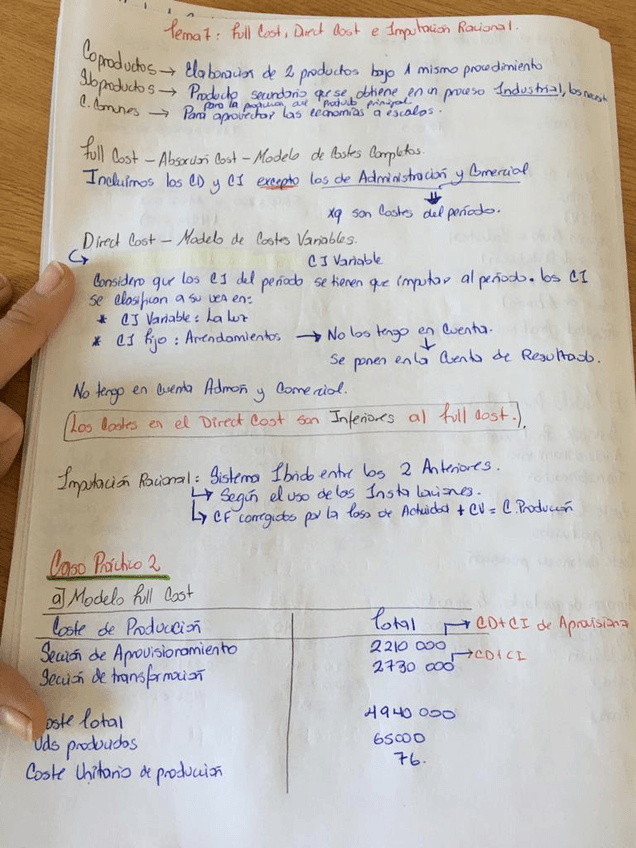 Tema 7: Full Cost, Direct Cost e Imputación Racional.
Coproductos → Elaboración de 2 productos bajo 1 mismo procedimiento
Subproductos → Producto secundario que se obtiene en un proceso Industrial, los necesito
para la producción del producto principal.
C. Comunes → Para aprovechar las economías a escalas.
Full Cost - Absorción Cost - Modelo de Costes Completos.
Incluimos los CD y CI excepto los de Administración y Comercial
xq son costes del período.
Direct Cost - Modelo de Costes Variables.
CI Variable
Considero que los CI del período se tienen que imputar al período. los CI
se clasifican a su vez en:
* CI Variable: La luz
* CI Fijo: Arrendamientos → No los tengo en cuenta.
Se ponen en la Cuenta de Resultado.
No tengo en cuenta Admón y Comercial.
Los Costes en el Direct Cost son Inferiores al full cost.
Imputación Racional: Sistema Ibrido entre los 2 Anteriores.
↳ Según el uso de las Instalaciones.
↳ CF corregidos por la tasa de Actividad + CV = C. Producción
Caso Práctico 2
a) Modelo Full Cost
Coste de Producción Total → CD+CI de Aprovisiona
Sección de Aprovisionamiento 2210 000
Sección de transformación 2730 000 → CD+CI
Coste Total 4940 000
Uds producidas 65000
Coste Unitario de producción 76.